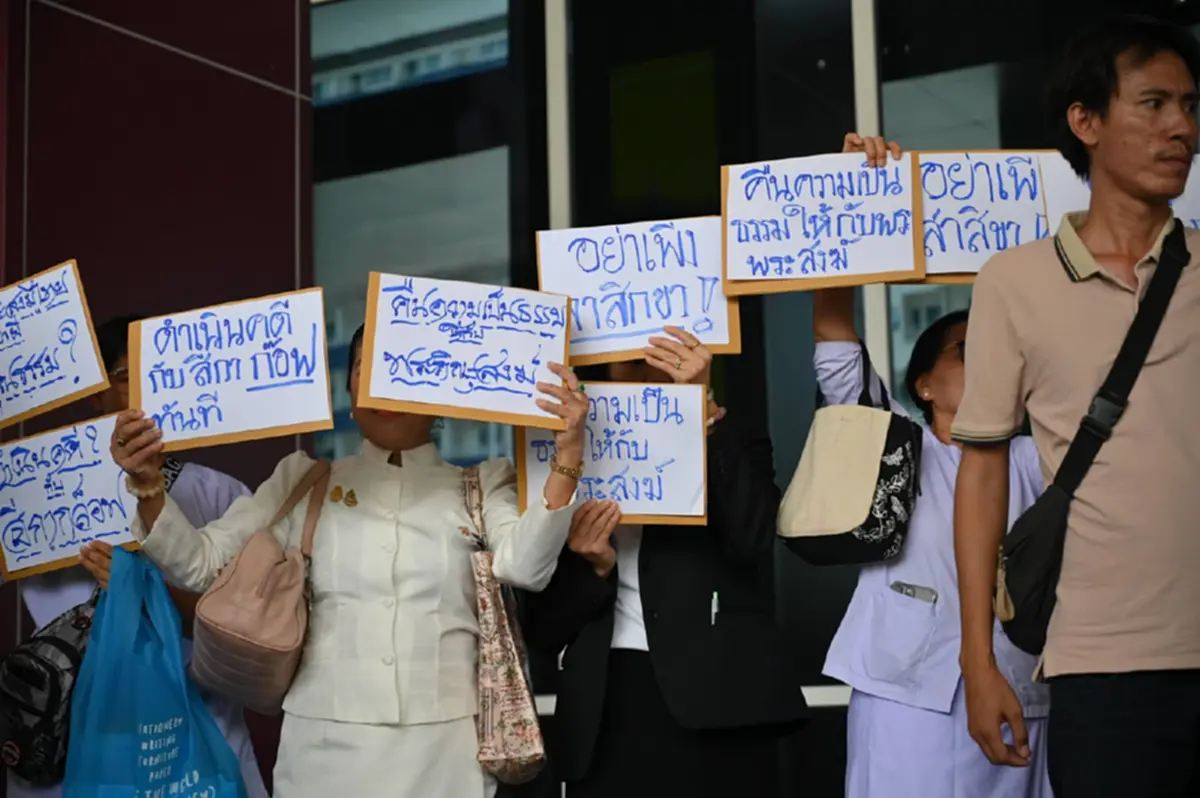 ดำเนินคดี
กับ สีกา ก๊อฟ
ทันที
คืนความเป็นธรรม
ให้กับ
พระภิกษุสงฆ์
อย่าเพิ่ง
ลาสิกขา !!
ความเป็น
ธรรม ให้กับ
พระสงฆ์
คืนความเป็น
ธรรม ให้กับพระ
พระสงฆ์
อย่าเพิ่
ลาสิกขา !
STATIONERY
WRITING
FURNITURE
PAPER